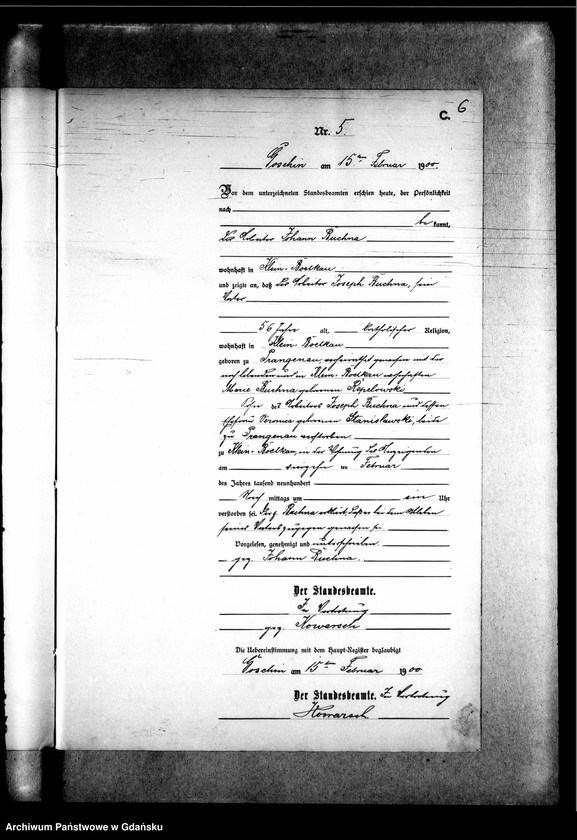 6
C.
Nr. 5.
Goschin am 15ten Februar 1900.
Vor dem unterzeichneten Standesbeamten erschien heute, der Persönlichkeit
nach
be kannt,
der Arbeiter Johann Ruchna
wohnhaft in Klein-Boelkau
und zeigte an, daß der Arbeiter Joseph Ruchna, sein
Vater
56 Jahre alt, katholischer Religion,
wohnhaft in Klein-Boelkau
geboren zu Prangenau, verheirathet gewesen mit der
noch lebenden und in Klein-Boelkau wohnhaften
Marie Ruchna geborenen Repelowski
Sohn des Arbeiters Joseph Ruchna und dessen
Ehefrau Veronica geborenen Stanislawski, beide
zu Prangenau verstorben
zu Klein-Boelkau, in der Wohnung des Anzeigenden
am ten Februar
des Jahres tausend neunhundert
Nach mittags um ein Uhr
verstorben sei. Ruchna erklärt, daß er bei dem Ableben
seines Vaters zugegen gewesen sei
Vorgelesen, genehmigt und unterschrieben
gez. Johann Ruchna.
Der Standesbeamte.
In Vertretung
gez. Kowarsch
Die Uebereinstimmung mit dem Haupt-Register beglaubigt
Goschin am 15ten Februar 1900
Der Standesbeamte. In Vertretung
Kowarsch
Archiwum Państwowe w Gdańsku